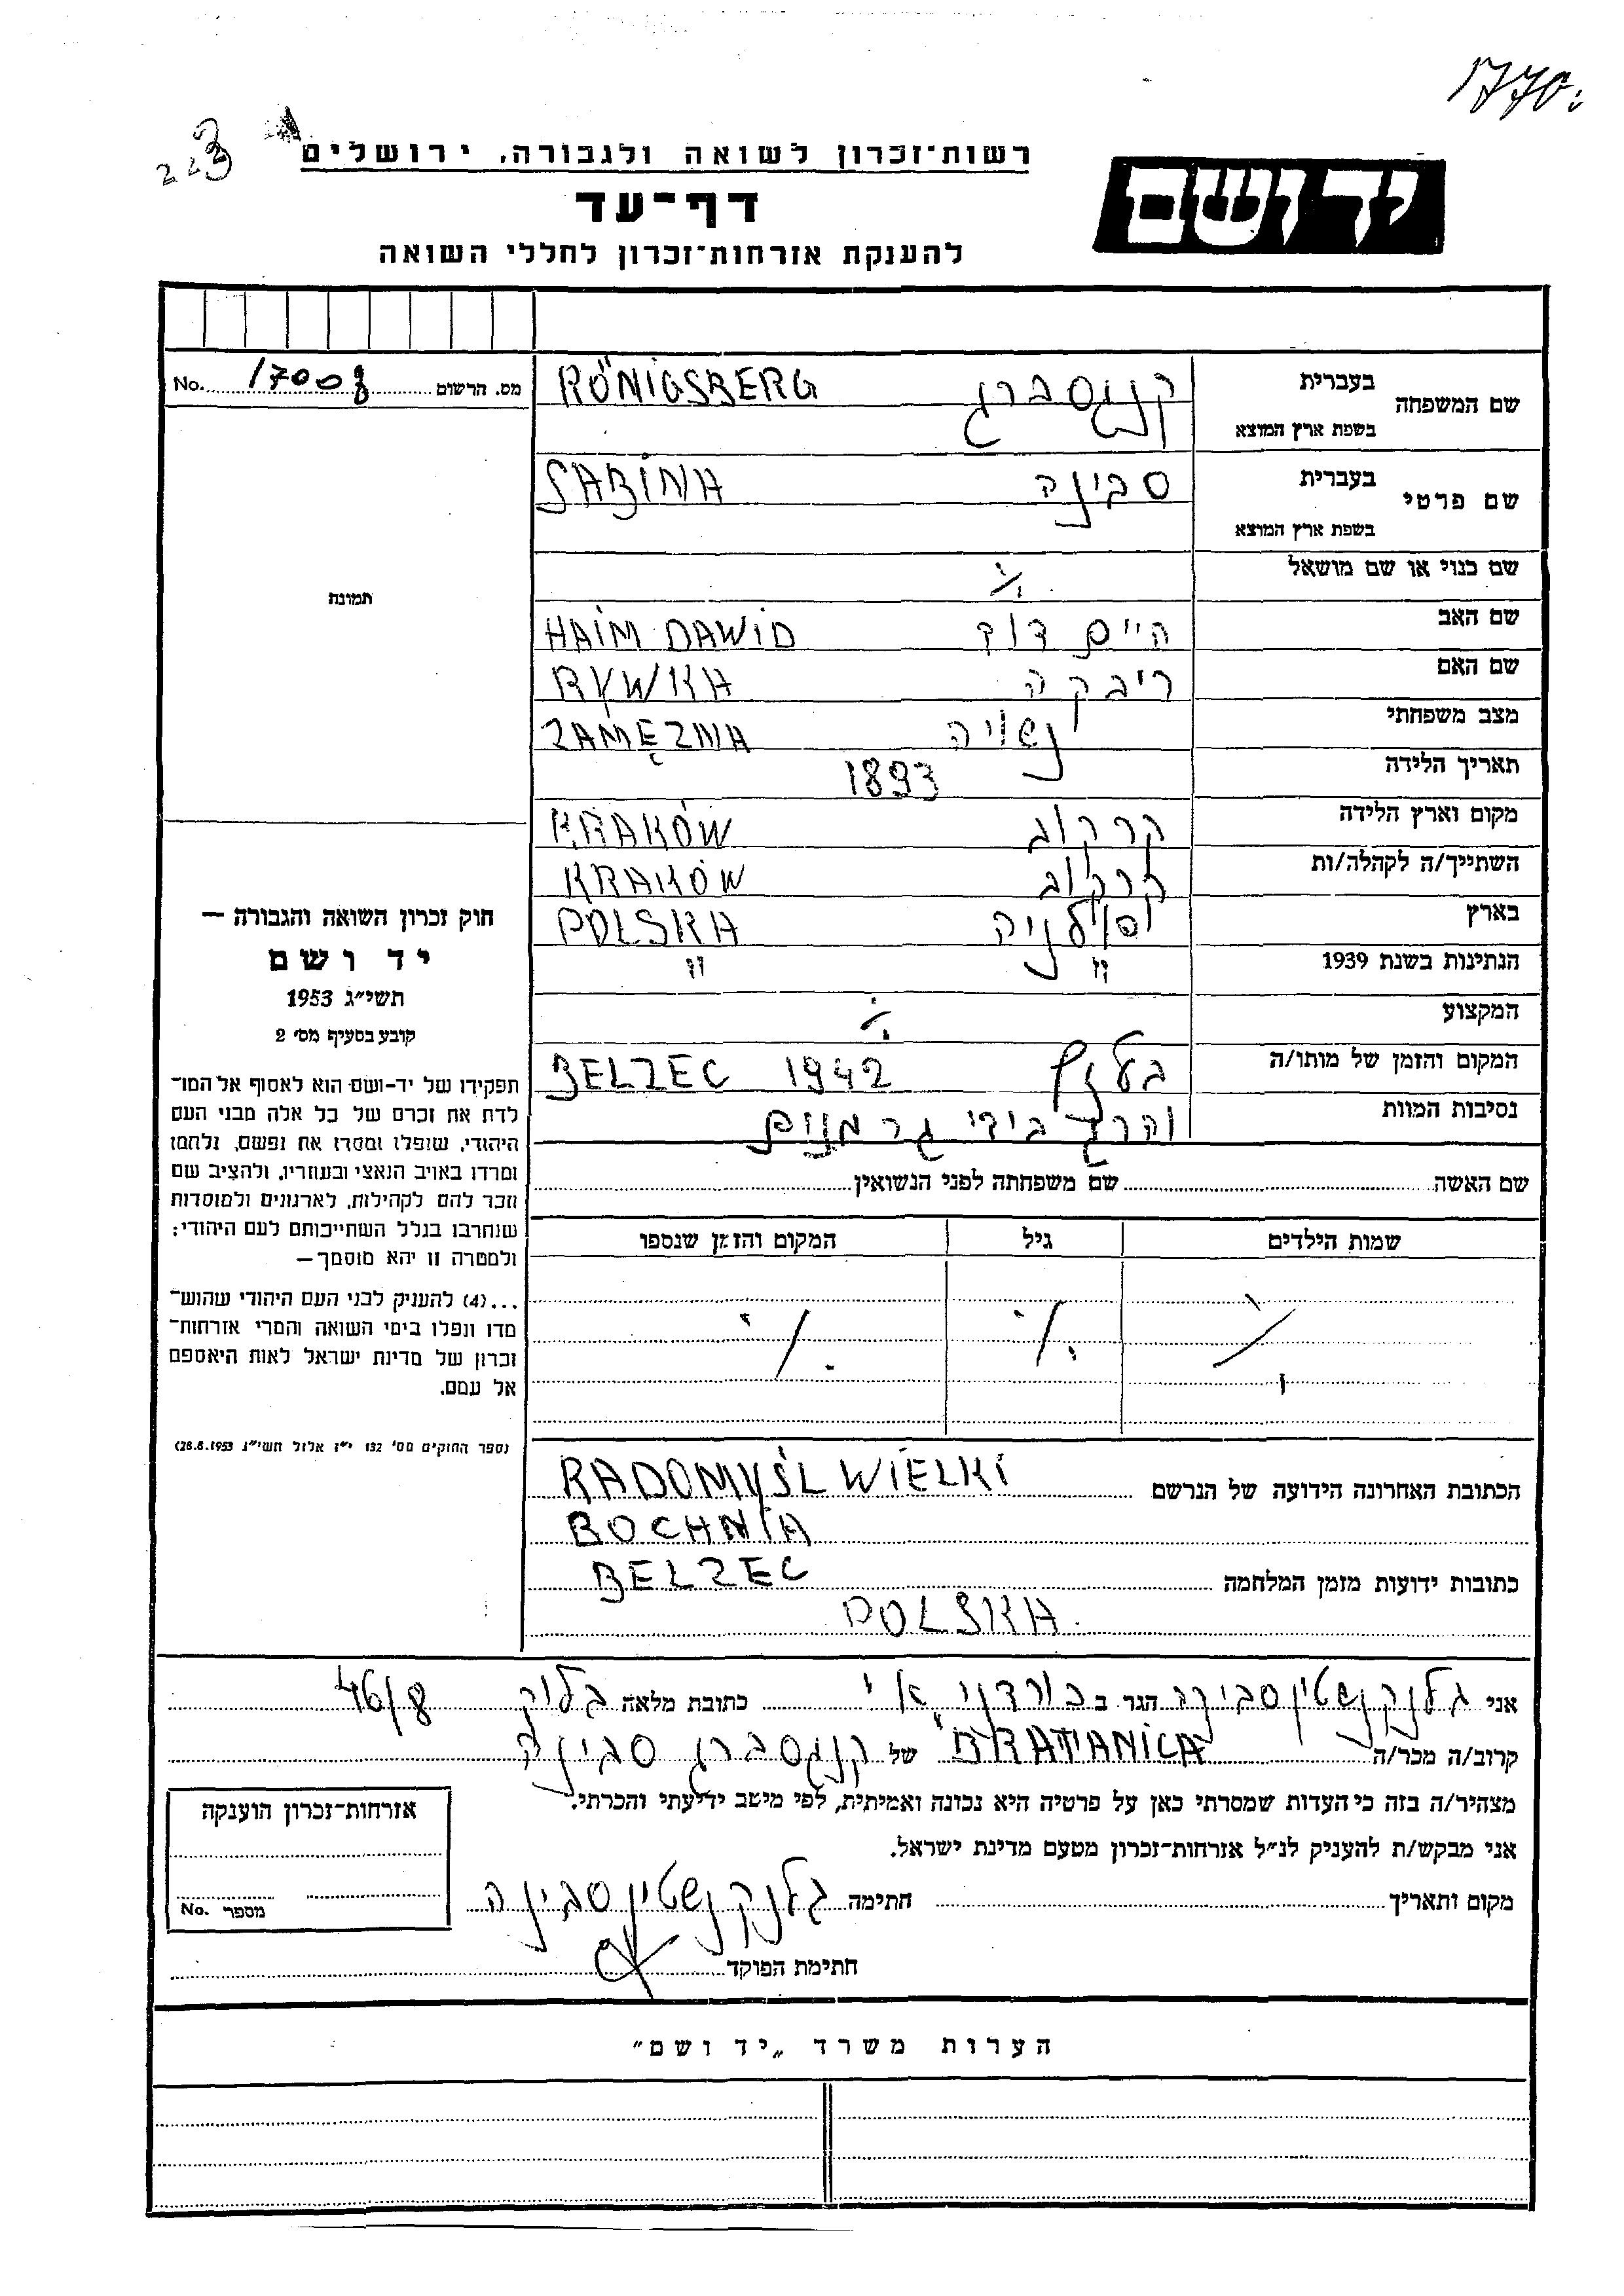 1770.
223
רשות־זכרון לשואה ולגבורה, ירושלים
יד ושם
דף־עד
להענקת אזרחות־זכרון לחללי השואה
No. 17008 מס. הרשום
שם המשפחה בעברית קניגסברג KÖNIGSBERG
בשפת ארץ המוצא
שם פרטי בעברית סבינה SABINA
בשפת ארץ המוצא
שם כנוי או שם מושאל ./.
תמונה
שם האב היים דוד HAIM DAWID
שם האם ריבקה RYWKA
מצב משפחתי נשויה ZAMĘZNA
תאריך הלידה 1893
מקום וארץ הלידה קרקוב KRAKÓW
השתייך/ה לקהלה/ות קרקוב KRAKÓW
בארץ פולניה POLSKA
הנתינות בשנת 1939 " "
המקצוע ./.
המקום והזמן של מותו/ה בלזץ BELZEC 1942
נסיבות המוות נהרג בידי גרמנים
שם האשה שם משפחתה לפני הנשואין
שמות הילדים גיל המקום והזמן שנספו
./. ./. ./.
חוק זכרון השואה והגבורה —
יד ושם
תשי״ג 1953
קובע בסעיף מס׳ 2
תפקידו של יד־ושם הוא לאסוף אל המו־
לדת את זכרם של כל אלה מבני העם
היהודי, שנפלו ומסרו את נפשם, נלחמו
ומרדו באויב הנאצי ובעוזריו, ולהציב שם
וזכר להם לקהילות, לארגונים ולמוסדות
שנחרבו בגלל השתייכותם לעם היהודי;
ולמטרה זו יהא מוסמך—
...(4) להעניק לבני העם היהודי שהוש־
מדו ונפלו בימי השואה והמרי אזרחות־
זכרון של מדינת ישראל לאות היאספם
אל עמם.
(ספר החוקים מס׳ 132 י״ז אלול תשי״ג 28.8.1953)
הכתובת האחרונה הידועה של הנרשם RADOMYŚL WIELKI
BOCHNIA
כתובות ידועות מזמן המלחמה BELZEC
POLSKA.
אני גלנקנשטין סבינה הגר ב כורדני א׳ כתובת מלאה בלוק 46/8
קרוב/ה מכר/ה BRATANICA של קניגסברג סבינה
מצהיר/ה בזה כי העדות שמסרתי כאן על פרטיה היא נכונה ואמיתית, לפי מיטב ידיעתי והכרתי.
אני מבקש/ת להעניק לנ״ל אזרחות־זכרון מטעם מדינת ישראל.
מקום ותאריך חתימה גלנקנשטין סבינה
חתימת הפוקד
אזרחות־זכרון הוענקה
מספר No.
הערות משרד „יד ושם״